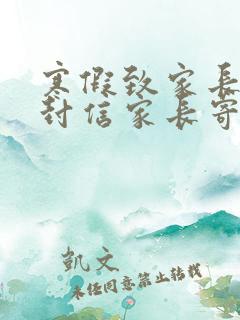 寒假致家长
封信家长寄
凯文
未经同意禁止转载